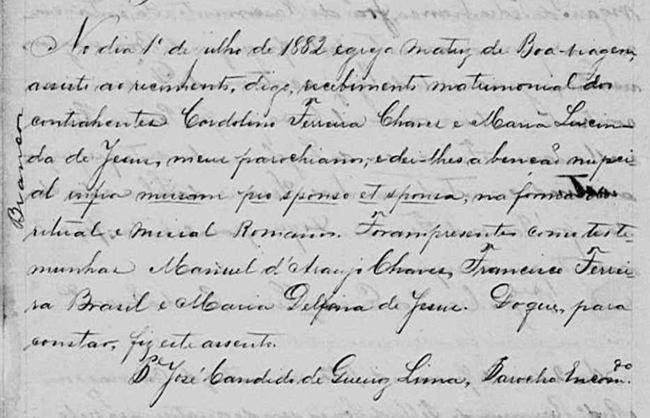 Brancos
No dia 1º de julho de 1882 egreja matriz de Boa-viagem,
assisto ao recimento, digo, recebimento matrimonial dos
contrahentes Cordolino Ferreira Chaves e Maria Lucin-
da de Jesus, meus parochianos, e dei-lhes a benção nupci-
al infra missam pro sponso et sponsa, na forma do
ritual e missal Romanos. Foram presentes como teste-
munhas Manuel d'Araujo Chaves, Francisco Ferrei-
ra Brasil e Maria Delfina de Jesus. Do que, para
constar, fiz este assento.
Pe José Candido de Queiroz Lima, Parocho Encomdo.